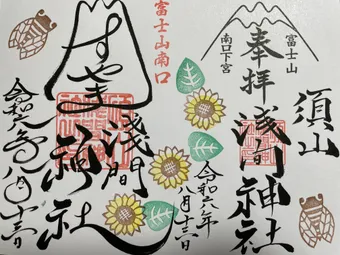 須山
富士山
奉拝
南口下宮
浅間神社
令和六年
八月十三日
富士山南口
すやま
浅間
神社
令和六年八月十三日